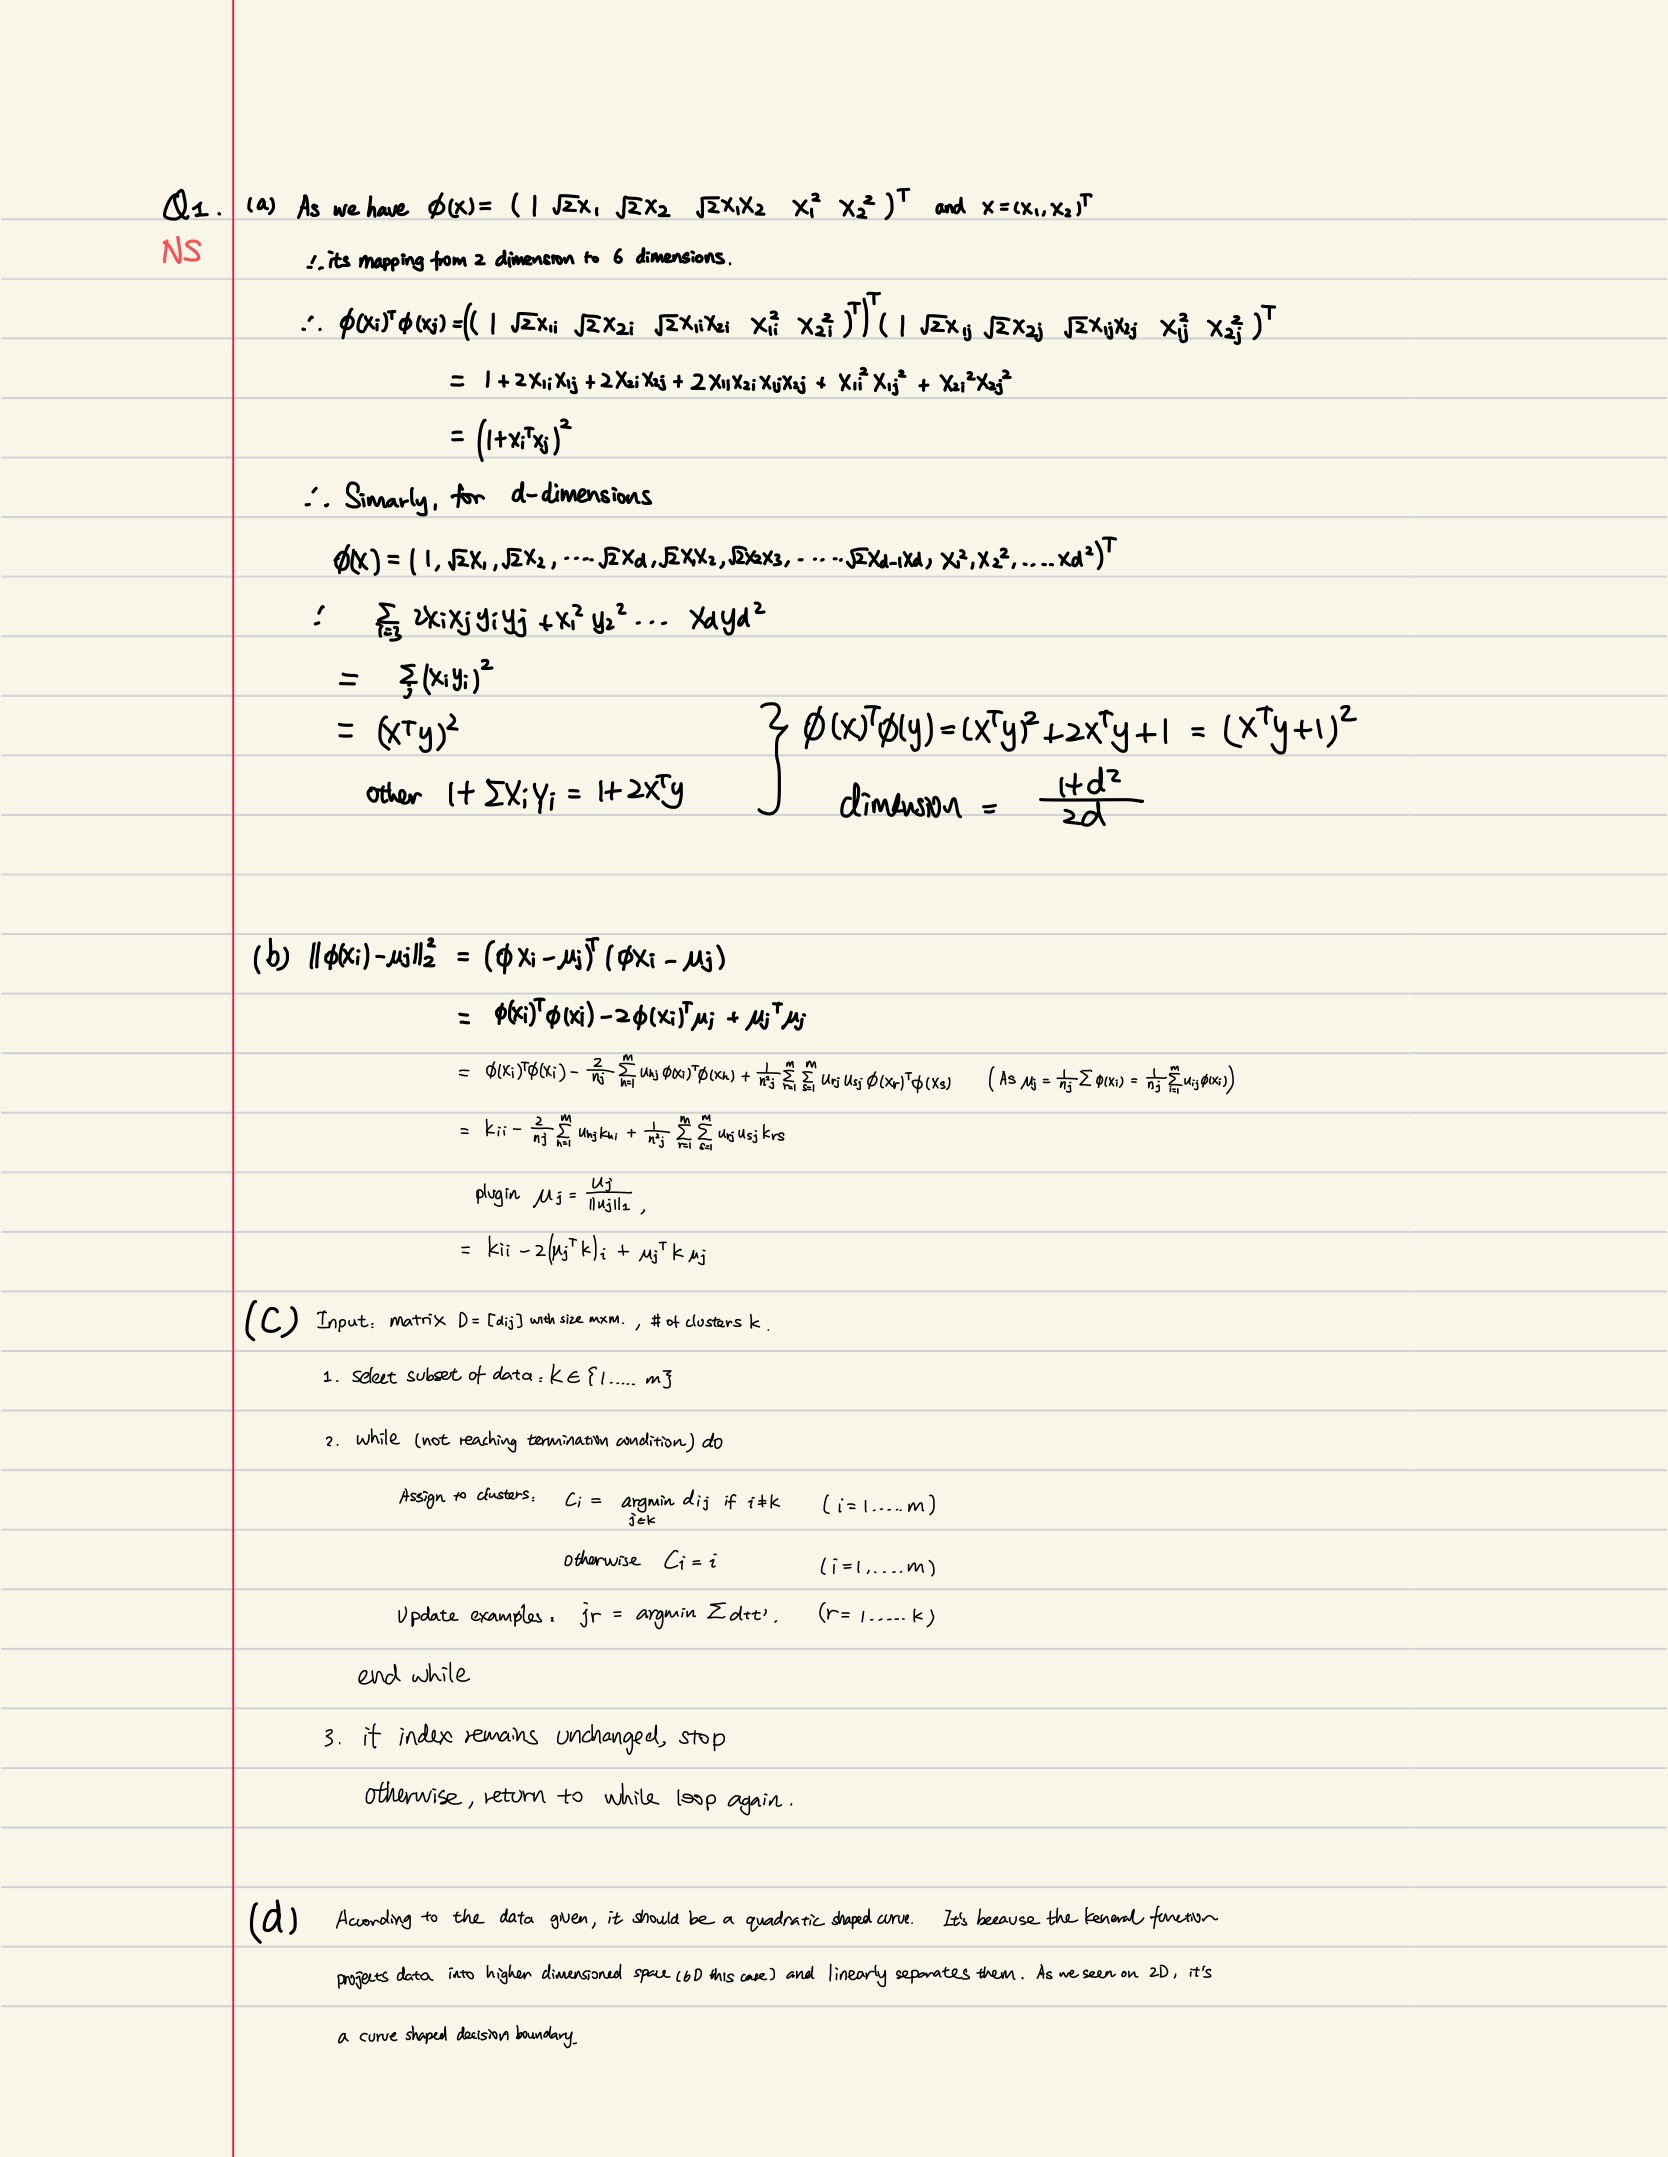 Q1. (a) As we have φ(x) = ( 1 √2x₁ √2x₂ √2x₁x₂ x₁² x₂² )ᵀ and x = (x₁, x₂)ᵀ
NS
∴ its mapping from 2 dimension to 6 dimensions.
∴ φ(xi)ᵀφ(xj) = (( 1 √2x₁i √2x₂i √2x₁ix₂i x₁i² x₂i² )ᵀ)ᵀ ( 1 √2x₁j √2x₂j √2x₁jx₂j x₁j² x₂j² )ᵀ
= 1 + 2x₁ix₁j + 2x₂ix₂j + 2x₁ix₂ix₁jx₂j + x₁i²x₁j² + x₂i²x₂j²
= (1+xiᵀxj)²
∴ Simarly, for d-dimensions
φ(x) = ( 1, √2x₁, √2x₂, ···· √2xd, √2x₁x₂, √2x₂x₃, ····· √2xd-1xd, x₁², x₂², .... xd² )ᵀ
∵ Σ i=3 2xixjyiyj + x₁² y₂² ... xdyd²
= Σ j (xiyi)²
= (xᵀy)² } φ(x)ᵀφ(y) = (xᵀy)² + 2xᵀy + 1 = (xᵀy+1)²
other 1 + Σxiyi = 1 + 2xᵀy dimension = (1+d²)/(2d)
(b) ||φ(xi) - μj||₂² = (φxi - μj)ᵀ (φxi - μj)
= φ(xi)ᵀφ(xi) - 2φ(xi)ᵀμj + μjᵀμj
= φ(xi)ᵀφ(xi) - 2/nj Σ h=1 m uhj φ(xi)ᵀφ(xh) + 1/n²j Σ r=1 m Σ s=1 m urj usj φ(xr)ᵀφ(xs) ( As μj = 1/nj Σ φ(xi) = 1/nj Σ i=1 m uij φ(xi) )
= kii - 2/nj Σ h=1 m uhj khi + 1/n²j Σ r=1 m Σ s=1 m urj usj krs
plugin μj = uj/||uj||₁ ,
= kii - 2(μjᵀk)i + μjᵀ k μj
(C) Input: matrix D = [dij] with size m×m. , # of clusters k.
1. select subset of data: K ∈ {1..... m}
2. while (not reaching termination condition) do
Assign to clusters: Ci = argmin j∈k dij if i≠k ( i = 1..... m)
otherwise Ci = i (i = 1,.....m)
Update examples: jr = argmin Σdtt'. (r = 1..... k)
end while
3. if index remains unchanged, stop
otherwise, return to while loop again.
(d) According to the data given, it should be a quadratic shaped curve. It's because the keneral function
projects data into higher dimensioned space (6D this case) and linearly separates them. As we seen on 2D, it's
a curve shaped decision boundary.